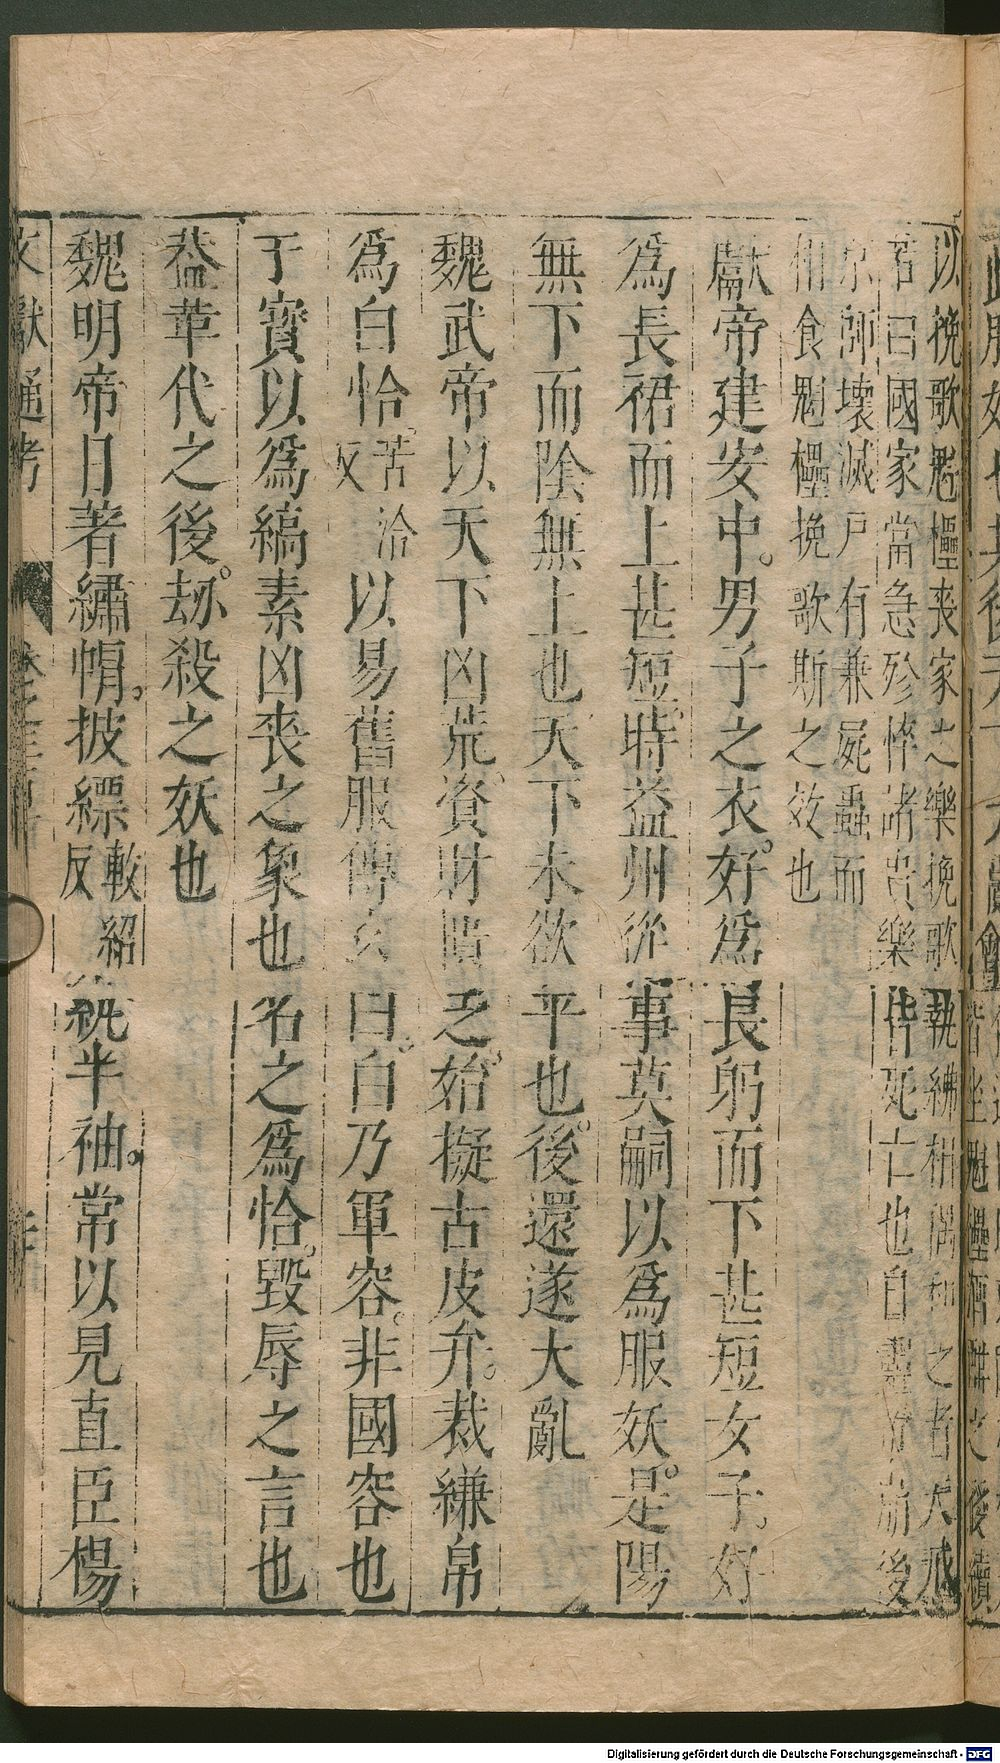 以挽歌魁𣡸喪家之樂挽歌執紼相偶和之者天戒
若曰國家當急殄悴諸貴樂皆死亡也自靈帝崩後
京師壞滅戶有兼屍蟲而
相食魁𣡸挽歌斯之效也
獻帝建安中男子之衣好為長躬而下甚短女子好
為長裙而上甚短時益州從事莫嗣以為服妖是陽
無下而陰無上也天下未欲平也後還遂大亂
魏武帝以天下凶荒資財匱乏始擬古皮弁裁縑帛
為白㡊苦洽反以易舊服傅玄曰白乃軍容非國容也
于寶以為縞素凶喪之象也名之為㡊毀辱之言也
葢革代之後刼殺之妖也
魏明帝日著繡㡌披縹𢾾紹反紈半袖常以見直臣楊
文獻通考
Digitalisierung gefördert durch die Deutsche Forschungsgemeinschaft - DFG